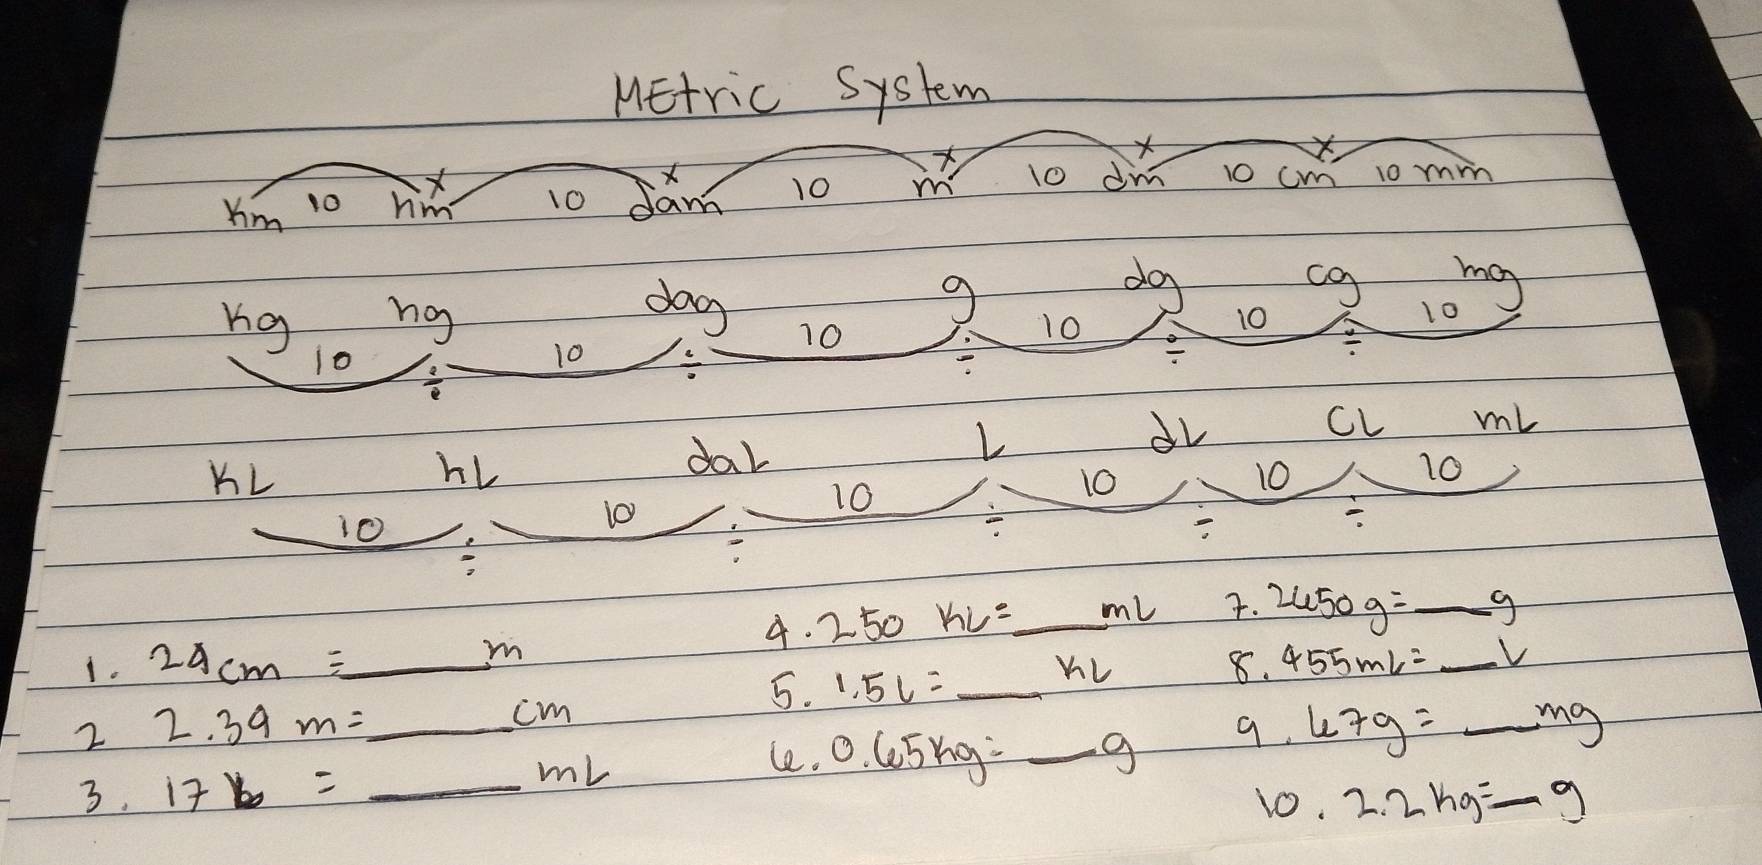 Metric System
x x x x x
Km 10 hm 10 dam 10 m 10 dm 10 cm 10 mm
Kg hg dag g dg cg mg
10 ÷ 10 ÷ 10 ÷ 10 ÷ 10 ÷ 10
KL hL daL L dL CL mL
10 ÷ 10 ÷ 10 ÷ 10 ÷ 10 ÷ 10
1. 24cm = ____ m
2 2.34 m = ____ cm
3. 17 = ____ mL
4. 250 KL = ____ mL
5. 1.5L = ____ KL
6. 0.65kg = ____ g
7. 2650g = ____ g
8. 455mL = ____ L
9. 67g = ____ mg
10. 2.2kg = ____ g